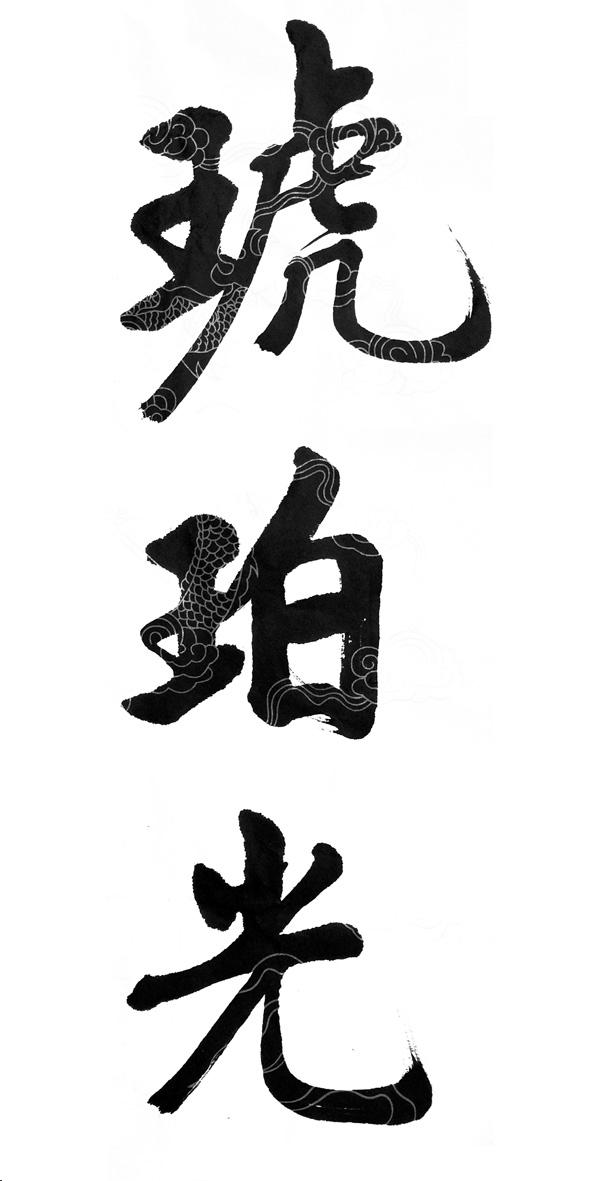 琥珀光